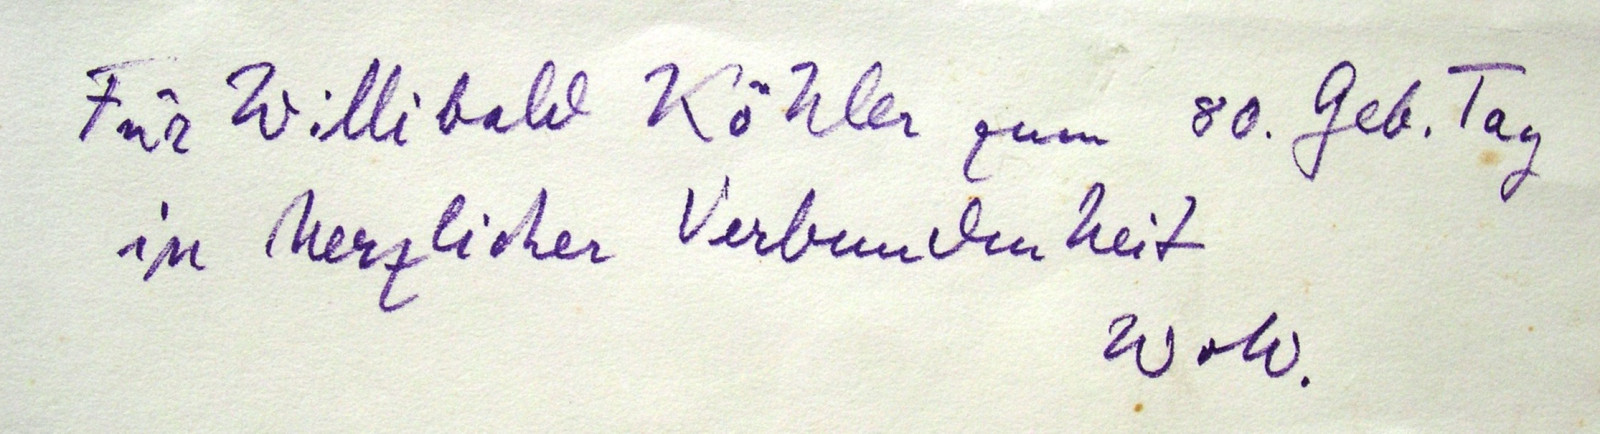 Für Willibald Köhler zum 80. Geb. Tag
in herzlicher Verbundenheit